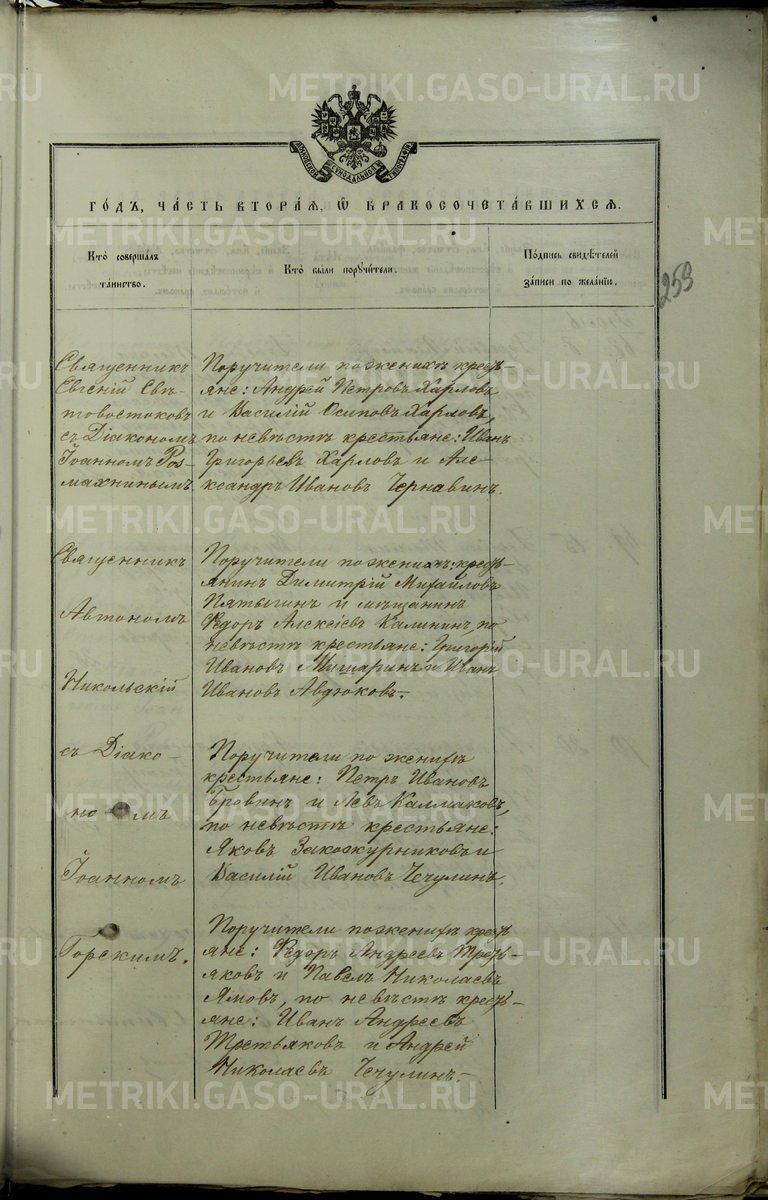 МОСКОВСКОЙ СѴНОДАЛЬНОЙ ТИПОГРАФІИ
ГО́ДЪ, ЧА́СТЬ ВТОРА́Я, Ѡ БРАКОСОЧЕТА́ВШИХСЯ.
Кто̀ соверша́лъ
та́инство.
Кто̀ были порꙋчи́тели.
По́дпись свидѣ́телей
за́писи по жела́нію.
259
Священникъ
Евгеній Свѣ-
товостоковъ
съ Діакономъ
Іоанномъ Роз-
махнинымъ.
Поручители по женихѣ крест-
яне: Андрей Петровъ Харловъ
и Василій Осиповъ Харловъ,
по невѣстѣ крестьяне: Иванъ
Григорьевъ Харловъ и Але-
ксандръ Иванов Чернавинъ.
Священникъ
Автономъ
Никольскій
съ Діако-
но мъ
Іоанномъ
Горскимъ.
Поручители по женихѣ: крест-
янинъ Димитрій Михайловъ
Пятыгинъ и мѣщанинъ
Ѳедоръ Алексіевъ Калининъ, по
невѣстѣ крестьяне: Григорій
Ивановъ Мишаринъ и Иванъ
Ивановъ Авдюковъ.
Поручители по женихѣ
крестьяне: Петръ Ивановъ
Бровинъ и Левъ Калмаковъ,
по невѣстѣ крестьяне:
Яковъ Закожурниковъ и
Василій Ивановъ Чечулинъ.
Поручители по женихѣ крест
яне: Ѳедоръ Андреевъ Трет-
яковъ и Павелъ Николаевъ
Ямовъ, по невѣстѣ крест-
яне: Иванъ Андреевъ
Третьяковъ и Андрей
Николаевъ Чечулинъ.
METRIKI.GASO-URAL.RU